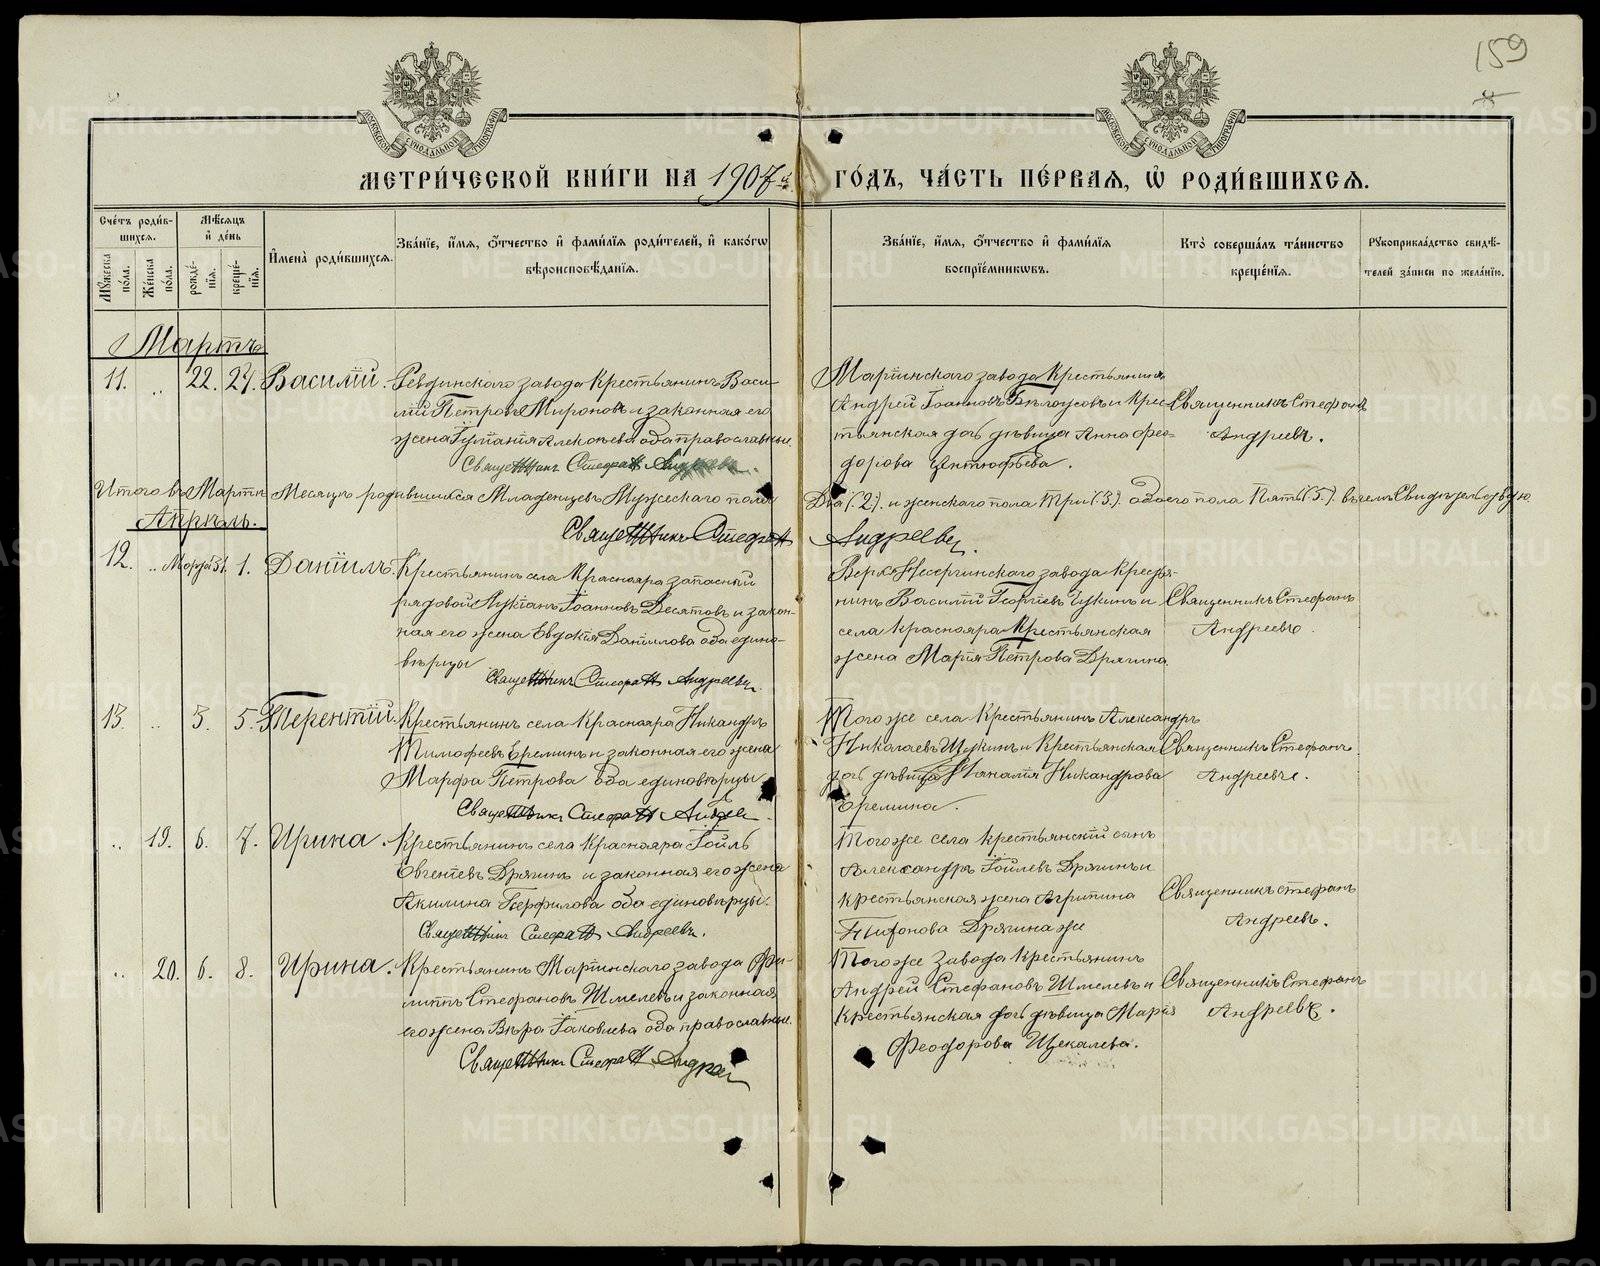 159
МЕТРИ́ЧЕСКОЙ КНИ́ГИ НА 1907й ГО́ДЪ, ЧА́СТЬ ПЕ́РВАѦ, Ѽ РОДИ́ВШИХСѦ.
МОСКОВСКОЙ СѴНОДАЛЬНОЙ ТИПОГРАФІИ
МОСКОВСКОЙ СѴНОДАЛЬНОЙ ТИПОГРАФІИ
Сче́тъ роди́в-
шихсѧ.
Мꙋ́жеска по́ла.
Же́нска по́ла.
Мѣ́сѧцъ
и҆ де́нь
рожде́-
нїѧ.
креще́-
нїѧ.
И҆мена̀ роди́вшихсѧ.
Зва́нїе, и҆́мѧ, ѻ҆́тчество и҆ фами́лїѧ роди́телей, и҆ како́гѡ
вѣроисповѣ́данїѧ.
Зва́нїе, и҆́мѧ, ѻ҆́тчество и҆ фами́лїѧ
воспрїе́мникѡвъ.
Кто̀ соверша́лъ та́инство
креще́нїѧ.
Рꙋкоприкла́дство свидѣ́-
телей за́писи по жела́нїю.
Мартъ
11. „ 22. 27. Василій. Ревдинскаго завода крестьянинъ Васи-
лій Петровъ Мироновъ и законная его
жена Алексѣева оба православные.
Священникъ Стефанъ Андреевъ.
Маріинскаго завода крестьянинъ
Андрей Іоанновъ Бѣлоусовъ и крес-
тьянская дочь дѣвица Анна Фео-
дорова
Священникъ Стефанъ
Андреевъ.
Итого въ Мартѣ месяцѣ родившихся Младенцевъ Мужескаго пола Два (2.) и женскаго пола Три (3.) обоего пола Пять (5.) въ чемъ Свидѣтельствую
Священникъ Стефанъ Андреевъ.
Апрѣль.
12. „ Марта 31. 1. Даніилъ. Крестьянинъ села Краснояра запасный
рядовой Лукіанъ Іоанновъ Десятовъ и закон-
ная его жена Евдокія Даніилова оба едино-
вѣрцы
Священникъ Стефанъ Андреевъ.
Верхо-Несергинскаго завода крестья-
нинъ Василій Георгіевъ и
села Краснояра Крестьянская
жена Марія Петрова Дрягина.
Священникъ Стефанъ
Андреевъ.
13. „ 3. 5. Терентій. Крестьянинъ села Краснояра Никандръ
Тимофеевъ Ереминъ и законная его жена
Марфа Петрова оба единовѣрцы
Священникъ Стефанъ
Того же села Крестьянинъ Александръ
Николаевъ Щукинъ и Крестьянская
дочь дѣвица Никандрова
Еремина.
Священникъ Стефанъ
Андреевъ.
„ 19. 6. 7. Ирина. Крестьянинъ села Краснояра Іоиль
Евгеніевъ Дрягинъ и законная его жена
Акилина Перфилова оба единовѣрцы.
Священникъ Стефанъ Андреевъ.
Того же села крестьянскій сынъ
Александръ Іоилевъ Дрягинъ и
крестьянская жена Агрипина
Тихонова Дрягина же
Священникъ Стефанъ
Андреевъ.
„ 20. 6. 8. Ирина. Крестьянинъ Маріинскаго завода Фи-
липпъ Стефановъ Шмелевъ и законная
его жена Вѣра Іаковлева оба православные.
Священникъ Стефанъ
Того же завода Крестьянинъ
Андрей Стефановъ Шмелевъ и
Крестьянская дочь дѣвица Марія
Феодорова Щекалева.
Священникъ Стефанъ
Андреевъ.
METRIKI.GASO-URAL.RU